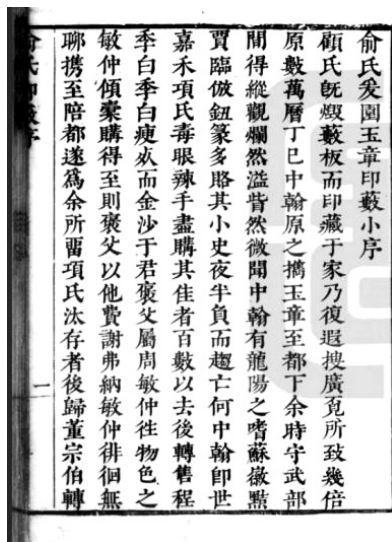 俞氏爰園玉章印藪小序
顧氏旣燬藪板而印藏于家乃復遐搜廣覓所致幾倍
原數萬曆丁巳中翰原之攜玉章至都下余時守武部
間得縱觀爛然溢眥然微聞中翰有龍陽之嗜蘇徽黠
賈臨倣鈕篆多賂其小史夜半負而趨亡何中翰卽世
嘉禾項氏毒眼辣手盡購其佳者百數以去後轉售程
季白季白瘐死而金沙于君褒父屬周敏仲徃物色之
敏仲傾橐購得至則褒父以他費謝弗納敏仲徘徊無
聊攜至陪都遂爲余所畱項氏汰存者後歸董宗伯轉
俞氏印藪序
一